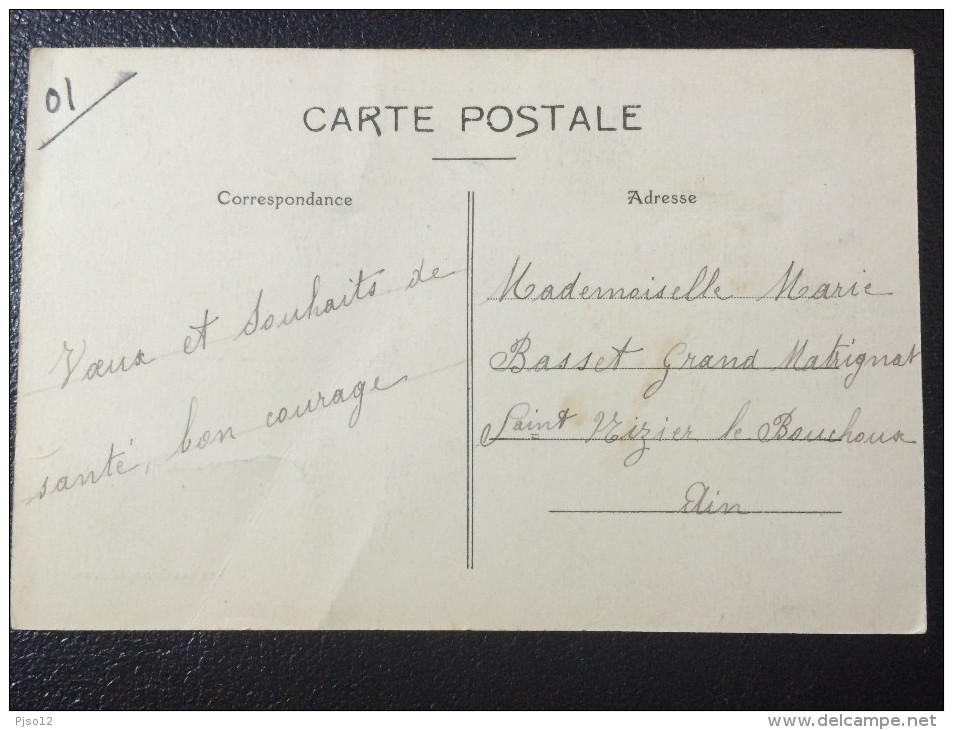 01
CARTE POSTALE
Correspondance
Vœux et Souhaits de
santé, bon courage
Adresse
Mademoiselle Marie
Basset Grand Matrignat
Saint Nizier le Bouchoux
Ain
Pjso12
www.delcampe.net